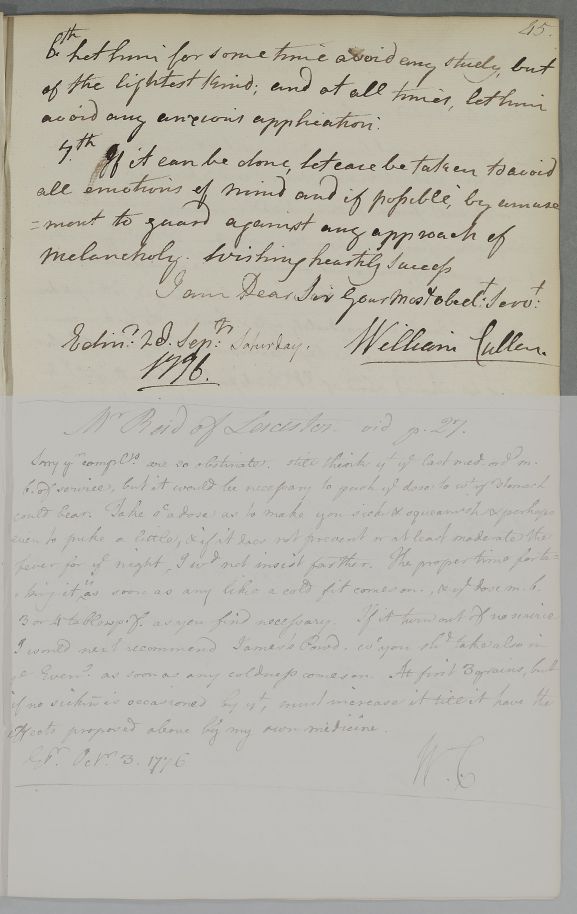 45.
6th Let him for some time avoid any study, but
of the lightest kind; and at all times, let him
avoid any anxious application.
7th If it can be done, let care be taken to avoid
all emotions of mind and if possible, by amuse
=ment to guard against any approach of
melancholy. Wishing heartily success
I am Dear Sir Your most obedt: Servt:
Edinr. 28. Sepr: Saturday. William Cullen.
1776.
Mr Reid of Leicester vid p. 27.
Sorry yr complts are so obstinate. still think yt ye last med. ord m.
b. of service, but it would be necessary to push ye dose to wt yr stomach
could bear. Take such a dose as to make you sick & squeamish & perhaps
even to puke a little, & if it does not prevent or at least moderate the
fever for ye night, I wd not insist farther. The proper time for ta=
=king it, is as soon as any like a cold fit comes on, & ye dose m. b.
3 or 4 tablespfs. as you find necessary. If it turn out of no service
I would next recommend James's Powd. wc you shd take also in
ye Eveng. as soon as any coldness comes on. At first 3 grains, but
if no sickns is occasioned by it, must increase it till it have the
effects proposed above by my own medicine.
Octr. 3. 1776 W. C